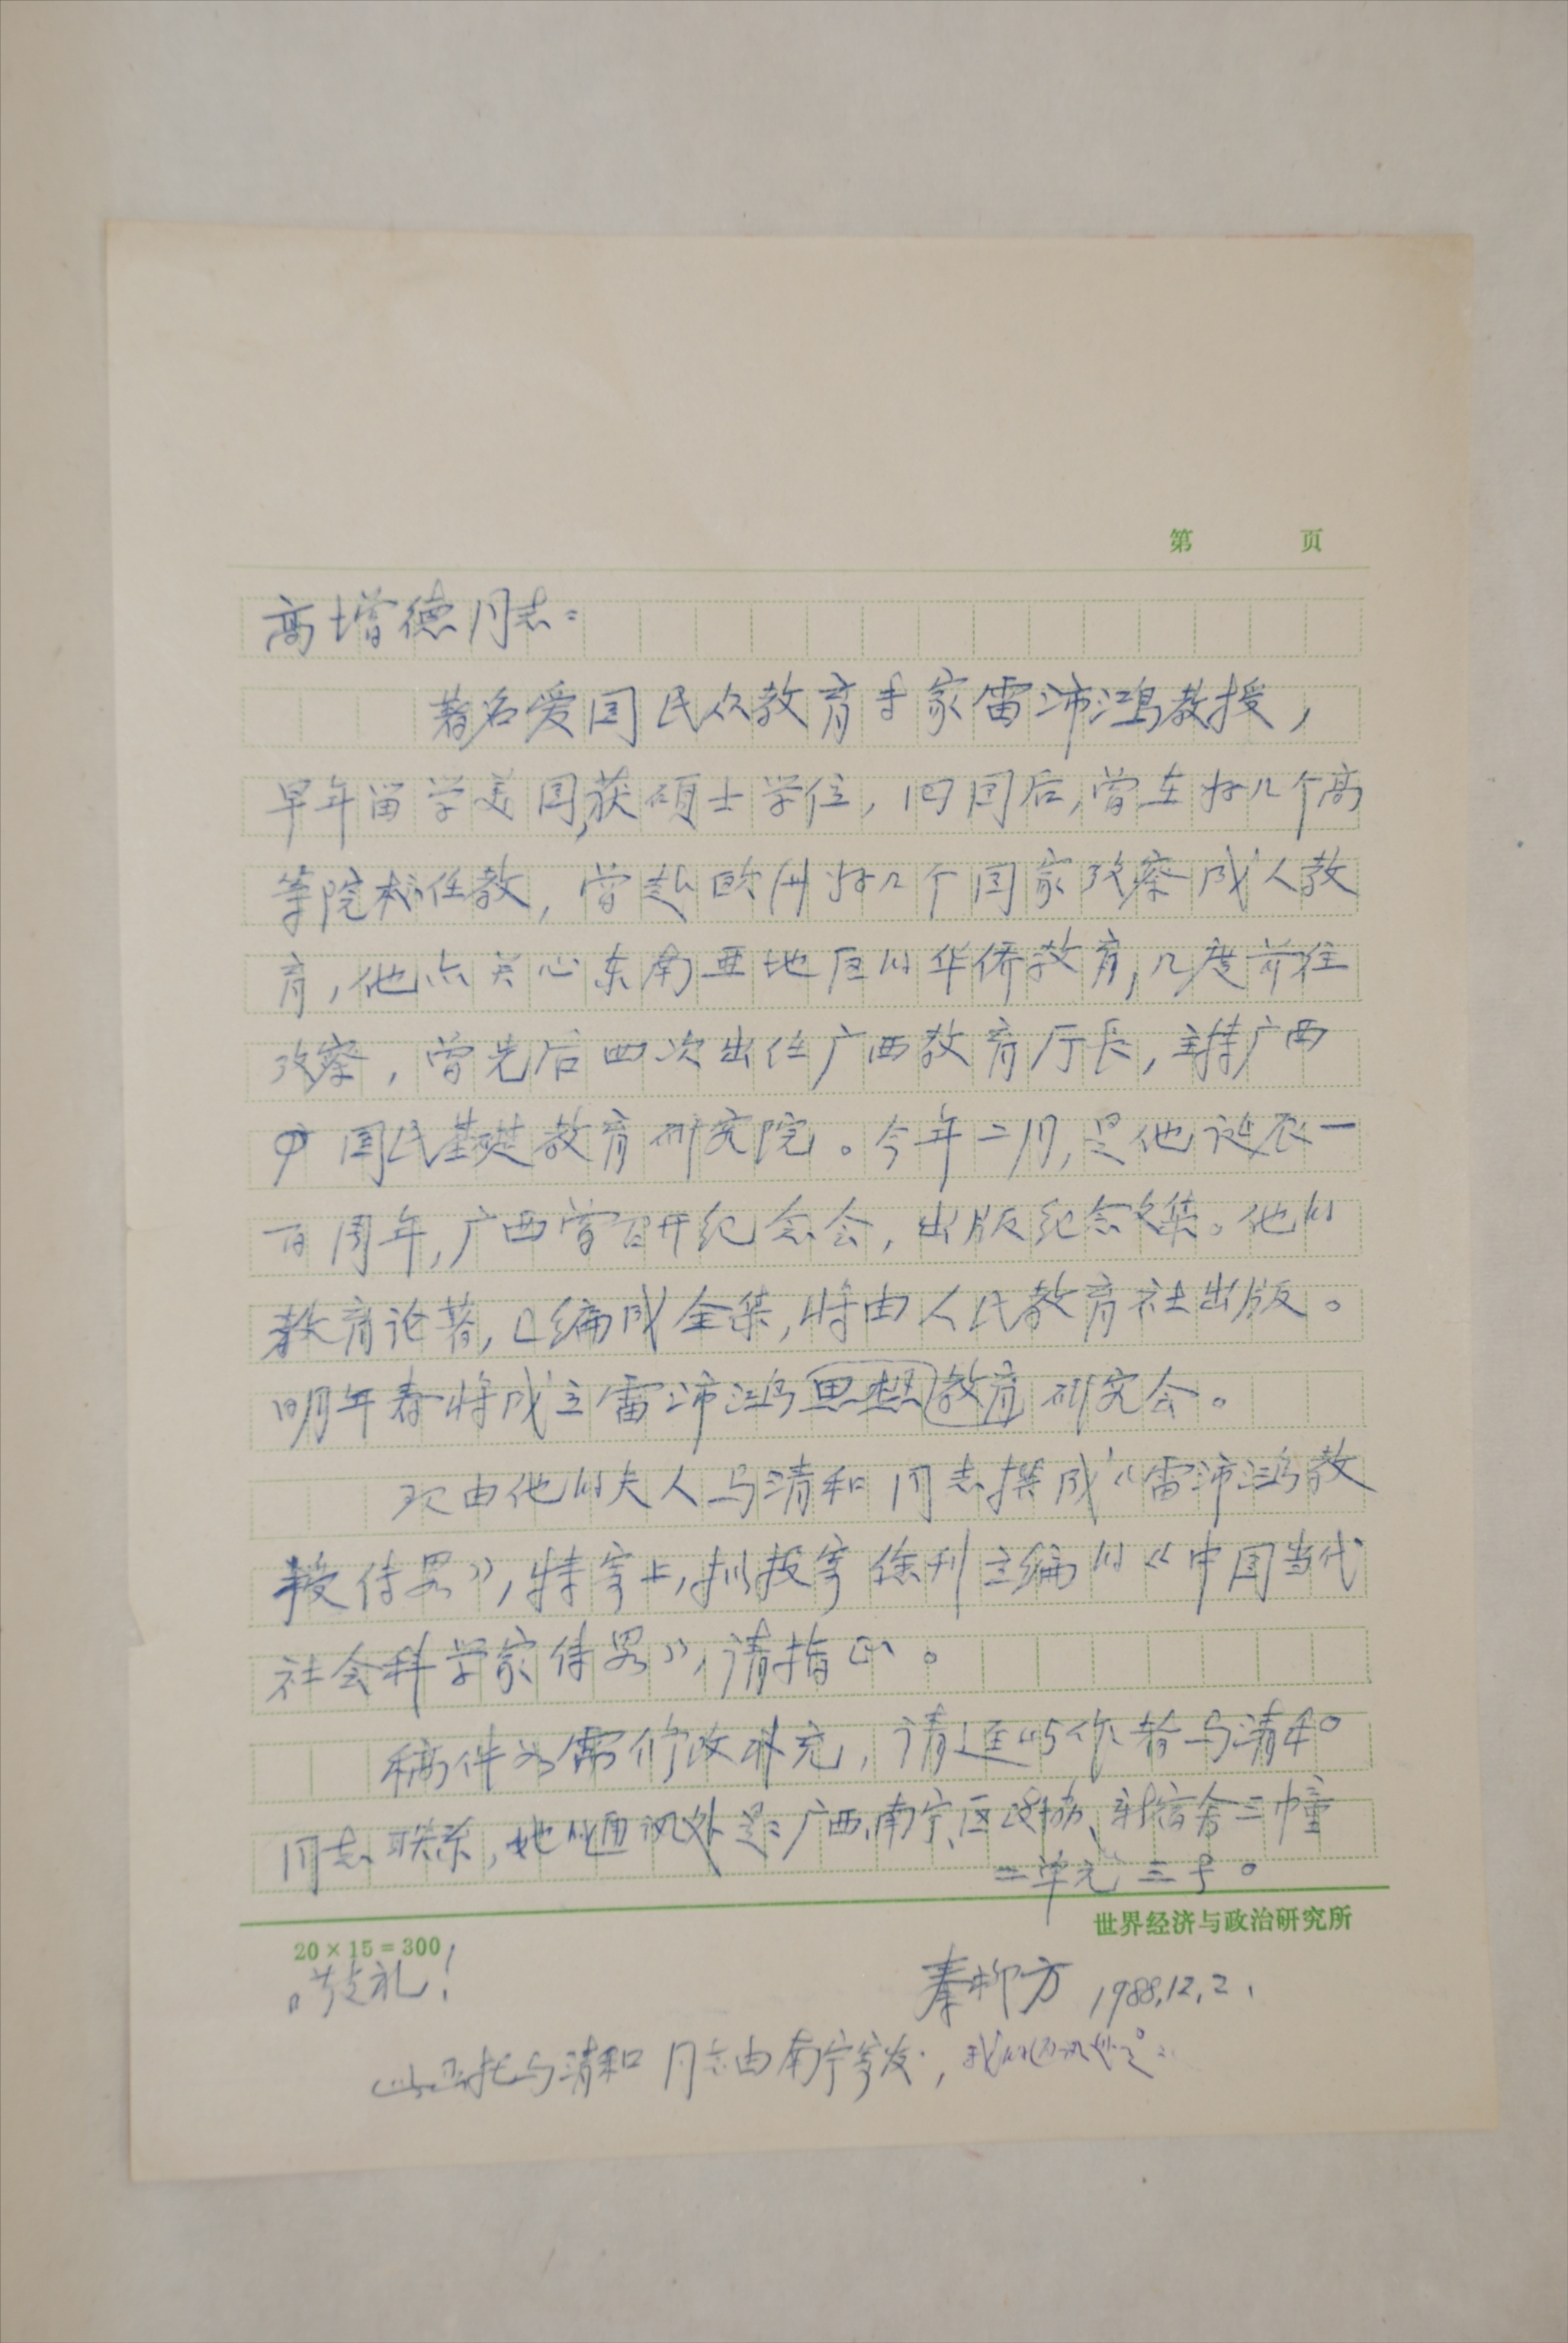 第 页
高增德同志：
著名爱国民众教育学家雷沛鸿教授，
早年留学美国，获硕士学位，回国后，曾在好几个高
等院校任教，曾赴欧洲好几个国家考察成人教
育，他亦关心东南亚地区的华侨教育，几度前往
考察，曾先后四次出任广西教育厅长，主持广西
国民基础教育研究院。今年二月，是他诞辰一
百周年，广西曾召开纪念会，出版纪念文集。他的
教育论著，已编成全集，将由人民教育社出版。
明年春将成立雷沛鸿思想教育研究会。
现由他的夫人马清和同志撰成《雷沛鸿教
授传略》，特寄上，拟投寄徐刊主编的《中国当代
社会科学家传略》，请指正。
稿件如需修改补充，请迳与作者马清和
同志联系，她的通讯处是：广西、南宁、区政协、新宿舍三幢
二单元三号。
世界经济与政治研究所
20×15=300
敬礼！
秦柳方 1988.12.2.
马清和同志由南宁寄发，我的通讯处是：